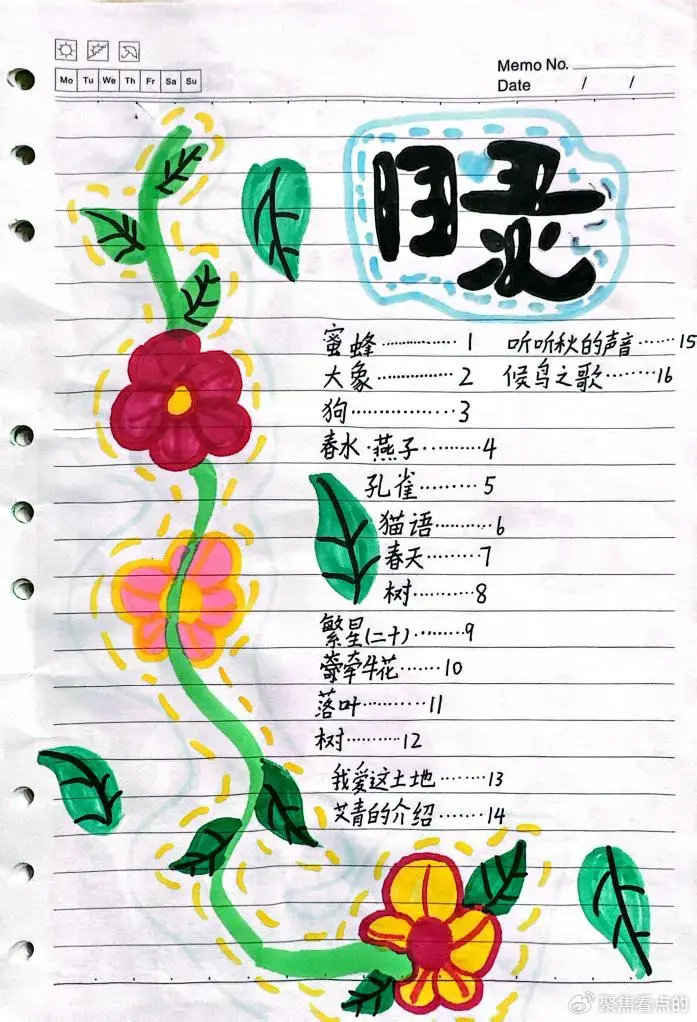 Memo No.
Mo Tu We Th Fr Sa Su
Date / /
目录
蜜蜂…………1
大象…………2
狗…………3
春水·燕子………4
孔雀………5
猫语………6
春天………7
树………8
繁星(二十)………9
牵牛花……10
落叶………11
树………12
我爱这土地……13
艾青的介绍……14
听听秋的声音……15
候鸟之歌……16
@聚焦看点的